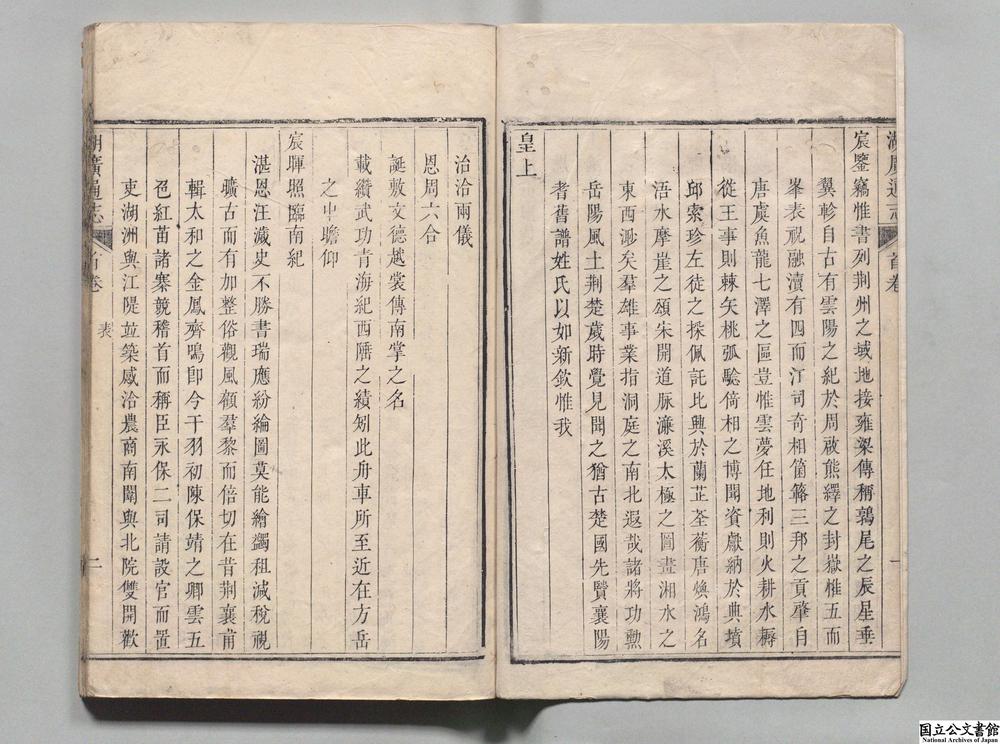 湖廣通志 首卷 一
宸鑒竊惟書列荆州之域地接雍梁傳稱鶉尾之辰星垂
翼軫自古有雲陽之紀於周啟熊繹之封嶽惟五而
峯表祝融瀆有四而江司奇相箘簵三邦之貢肇自
唐虞魚龍七澤之區豈惟雲夢任地利則火耕水耨
從王事則棘矢桃弧騐倚相之博聞資獻納於典墳
邱索珍左徒之採佩託比興於蘭芷荃蘅唐煥鴻名
浯水摩崖之頌宋開道脉濂溪太極之圖畫湘水之
東西渺矣羣雄事業指洞庭之南北遐哉諸將功勲
岳陽風土荆楚歲時覺見聞之猶古楚國先賢襄陽
耆舊譜姓氏以如新欽惟我
皇上
治洽兩儀
恩周六合
誕敷文德越裳傳南掌之名
載纘武功青海紀西陲之績矧此舟車所至近在方岳
之中瞻仰
宸暉照臨南紀
湛恩汪濊史不勝書瑞應紛綸圖莫能繪蠲租減稅視
曠古而有加整俗觀風顧羣黎而倍切在昔荆襄甫
輯太和之金鳳齊鳴卽今干羽初陳保靖之卿雲五
色紅苗諸寨競稽首而稱臣永保二司請設官而置
吏湖洲與江隄竝築感洽農商南闈與北院雙開歡
湖廣通志 首卷 表 二
国立公文書館
National Archives of Japan